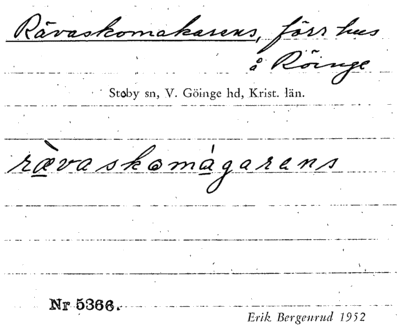 Rävaskomakarens, förr hus
å Röinge
Stoby sn, V. Göinge hd, Krist. län.
rævaskomágarens
Nr 5366.
Erik Bergenrud 1952